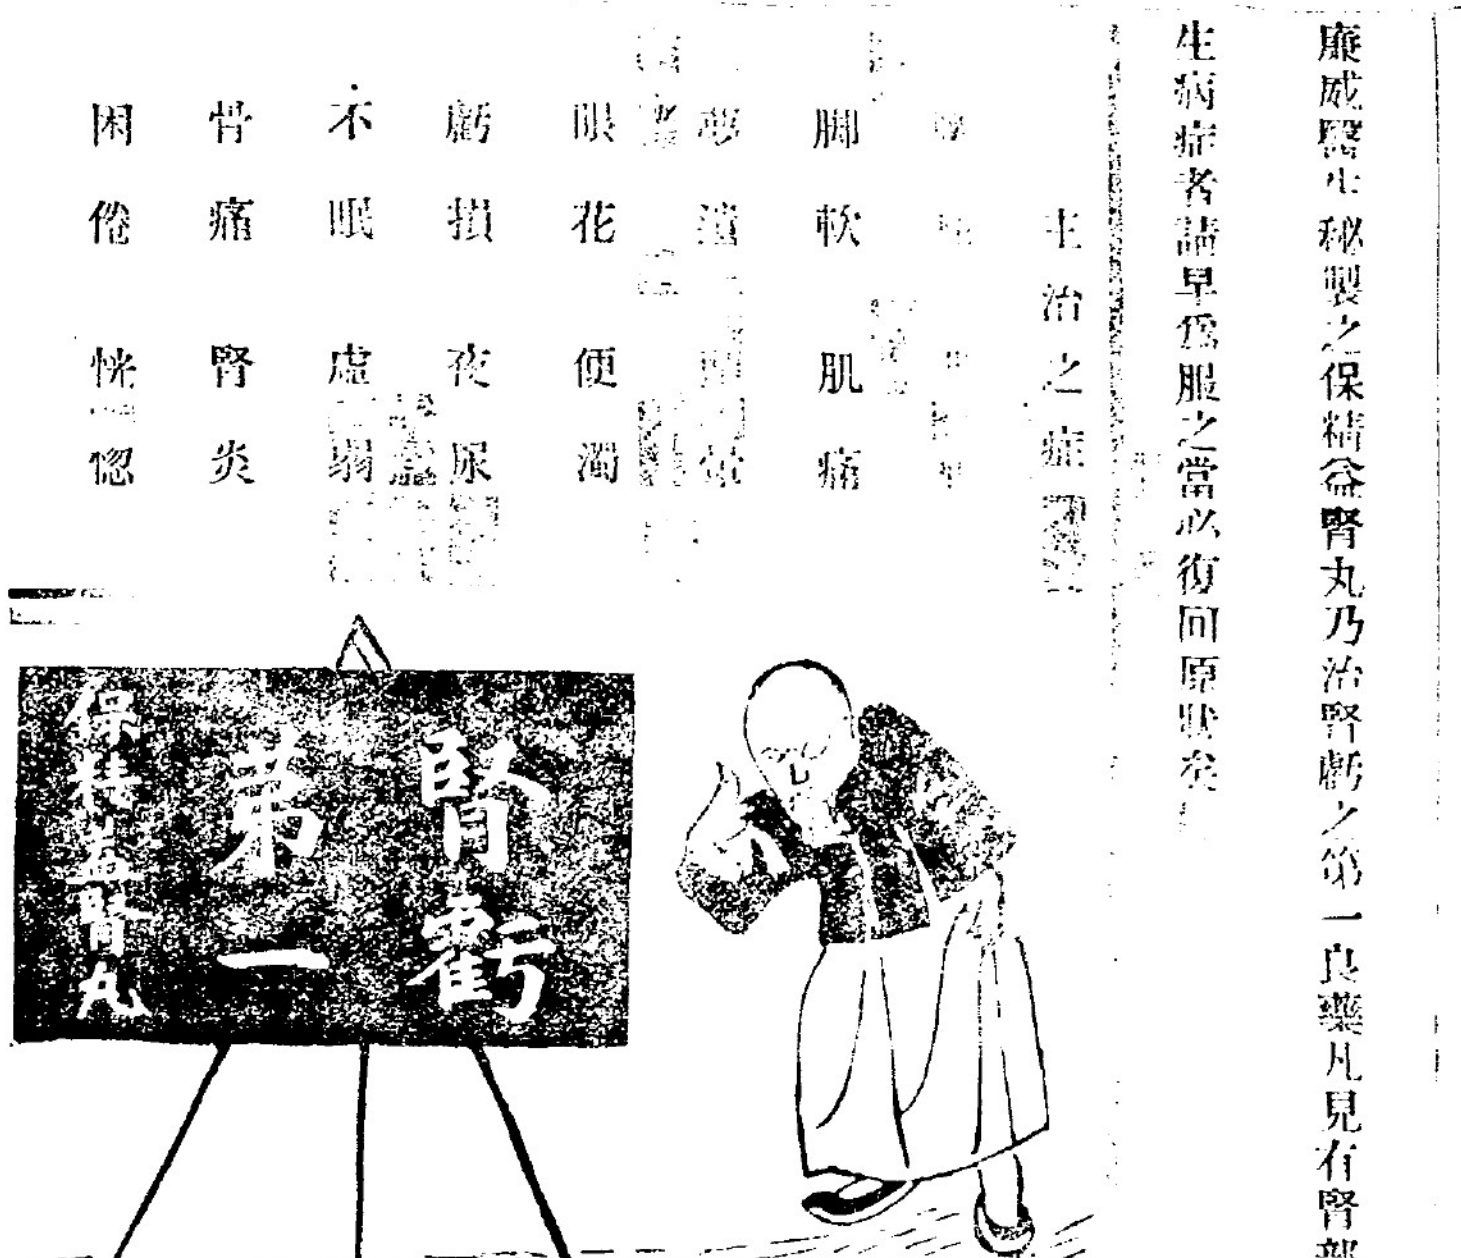 廉威醫生秘製之保精益腎丸乃治腎虧之第一良藥凡見有腎部
生病症者請早為服之當必復回原狀矣
主治之症
脚軟 肌痛
夢遺
眼花 便濁
虧損 夜尿
不眠 虛弱
骨痛 腎炎
困倦 恍惚
腎虧
第一
保精益腎丸